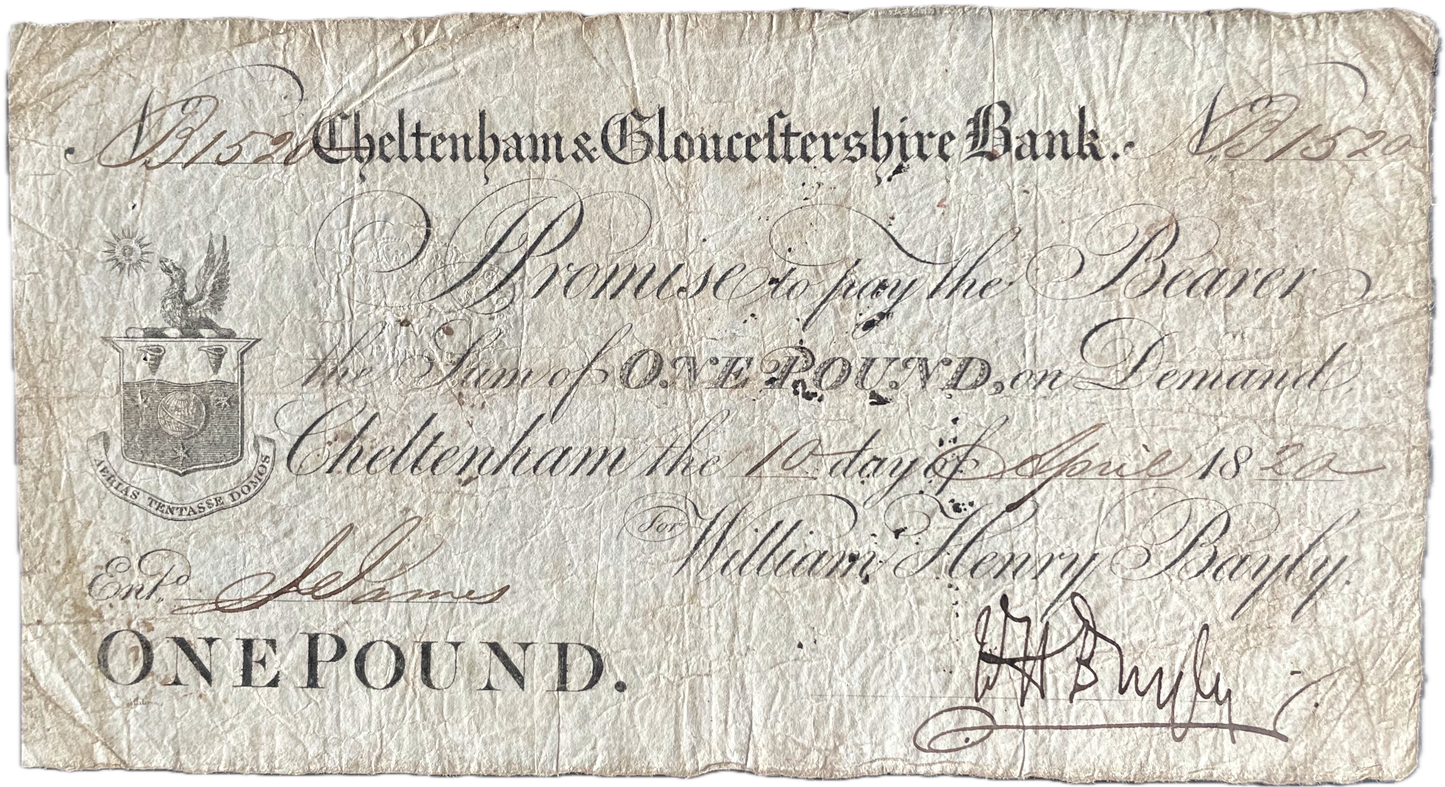 No B1520 Cheltenham & Glouceſtershire Bank. No B1520
I Promise to pay the Bearer
the Sum of ONE POUND, on Demand
Cheltenham the 10 day of April 1820
For William Henry Bayly.
AERIAS TENTASSE DOMOS
Entd. J. James
ONE POUND.
W H Bayly